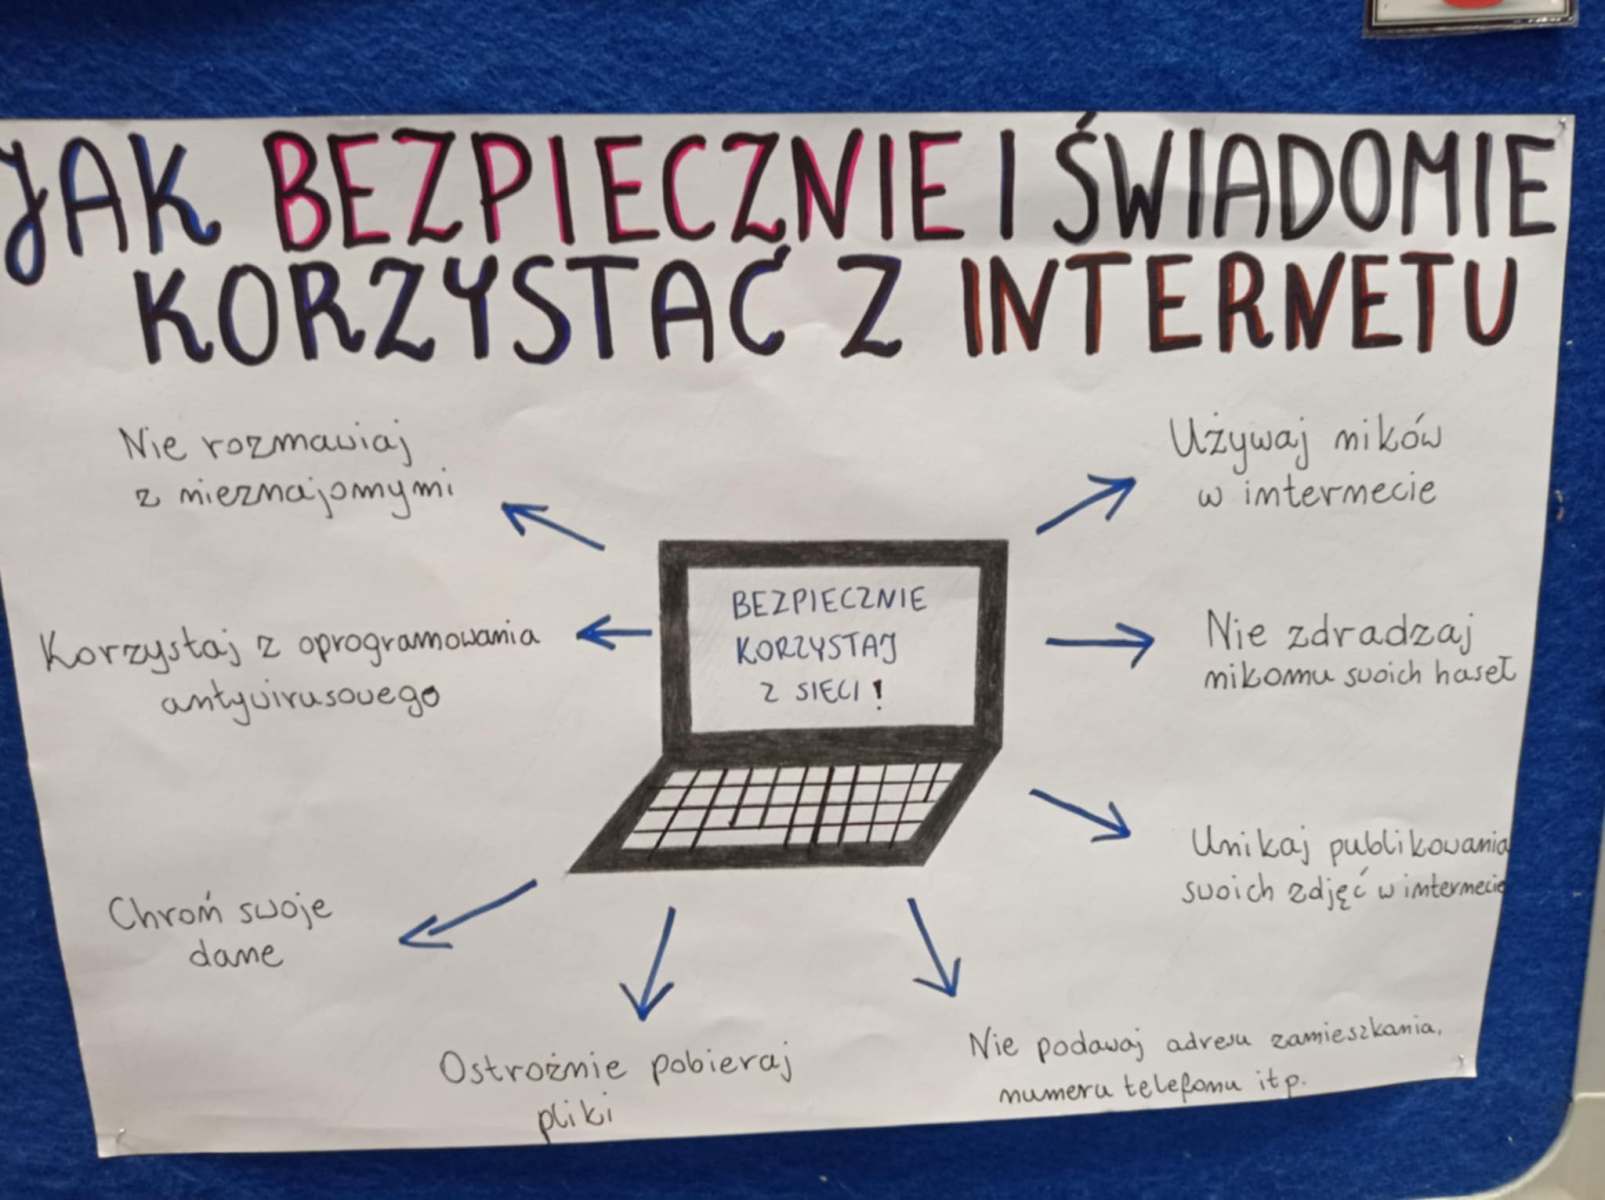 JAK BEZPIECZNIE I ŚWIADOMIE
KORZYSTAĆ Z INTERNETU
Nie rozmawiaj
z nieznajomymi
Używaj ników
w internecie
BEZPIECZNIE
KORZYSTAJ
Z SIECI!
Korzystaj z oprogramowania
antywirusowego
Nie zdradzaj
nikomu swoich haseł
Unikaj publikowania
swoich zdjęć w internecie
Chroń swoje
dane
Ostrożnie pobieraj
pliki
Nie podawaj adresu zamieszkania,
numeru telefonu itp.